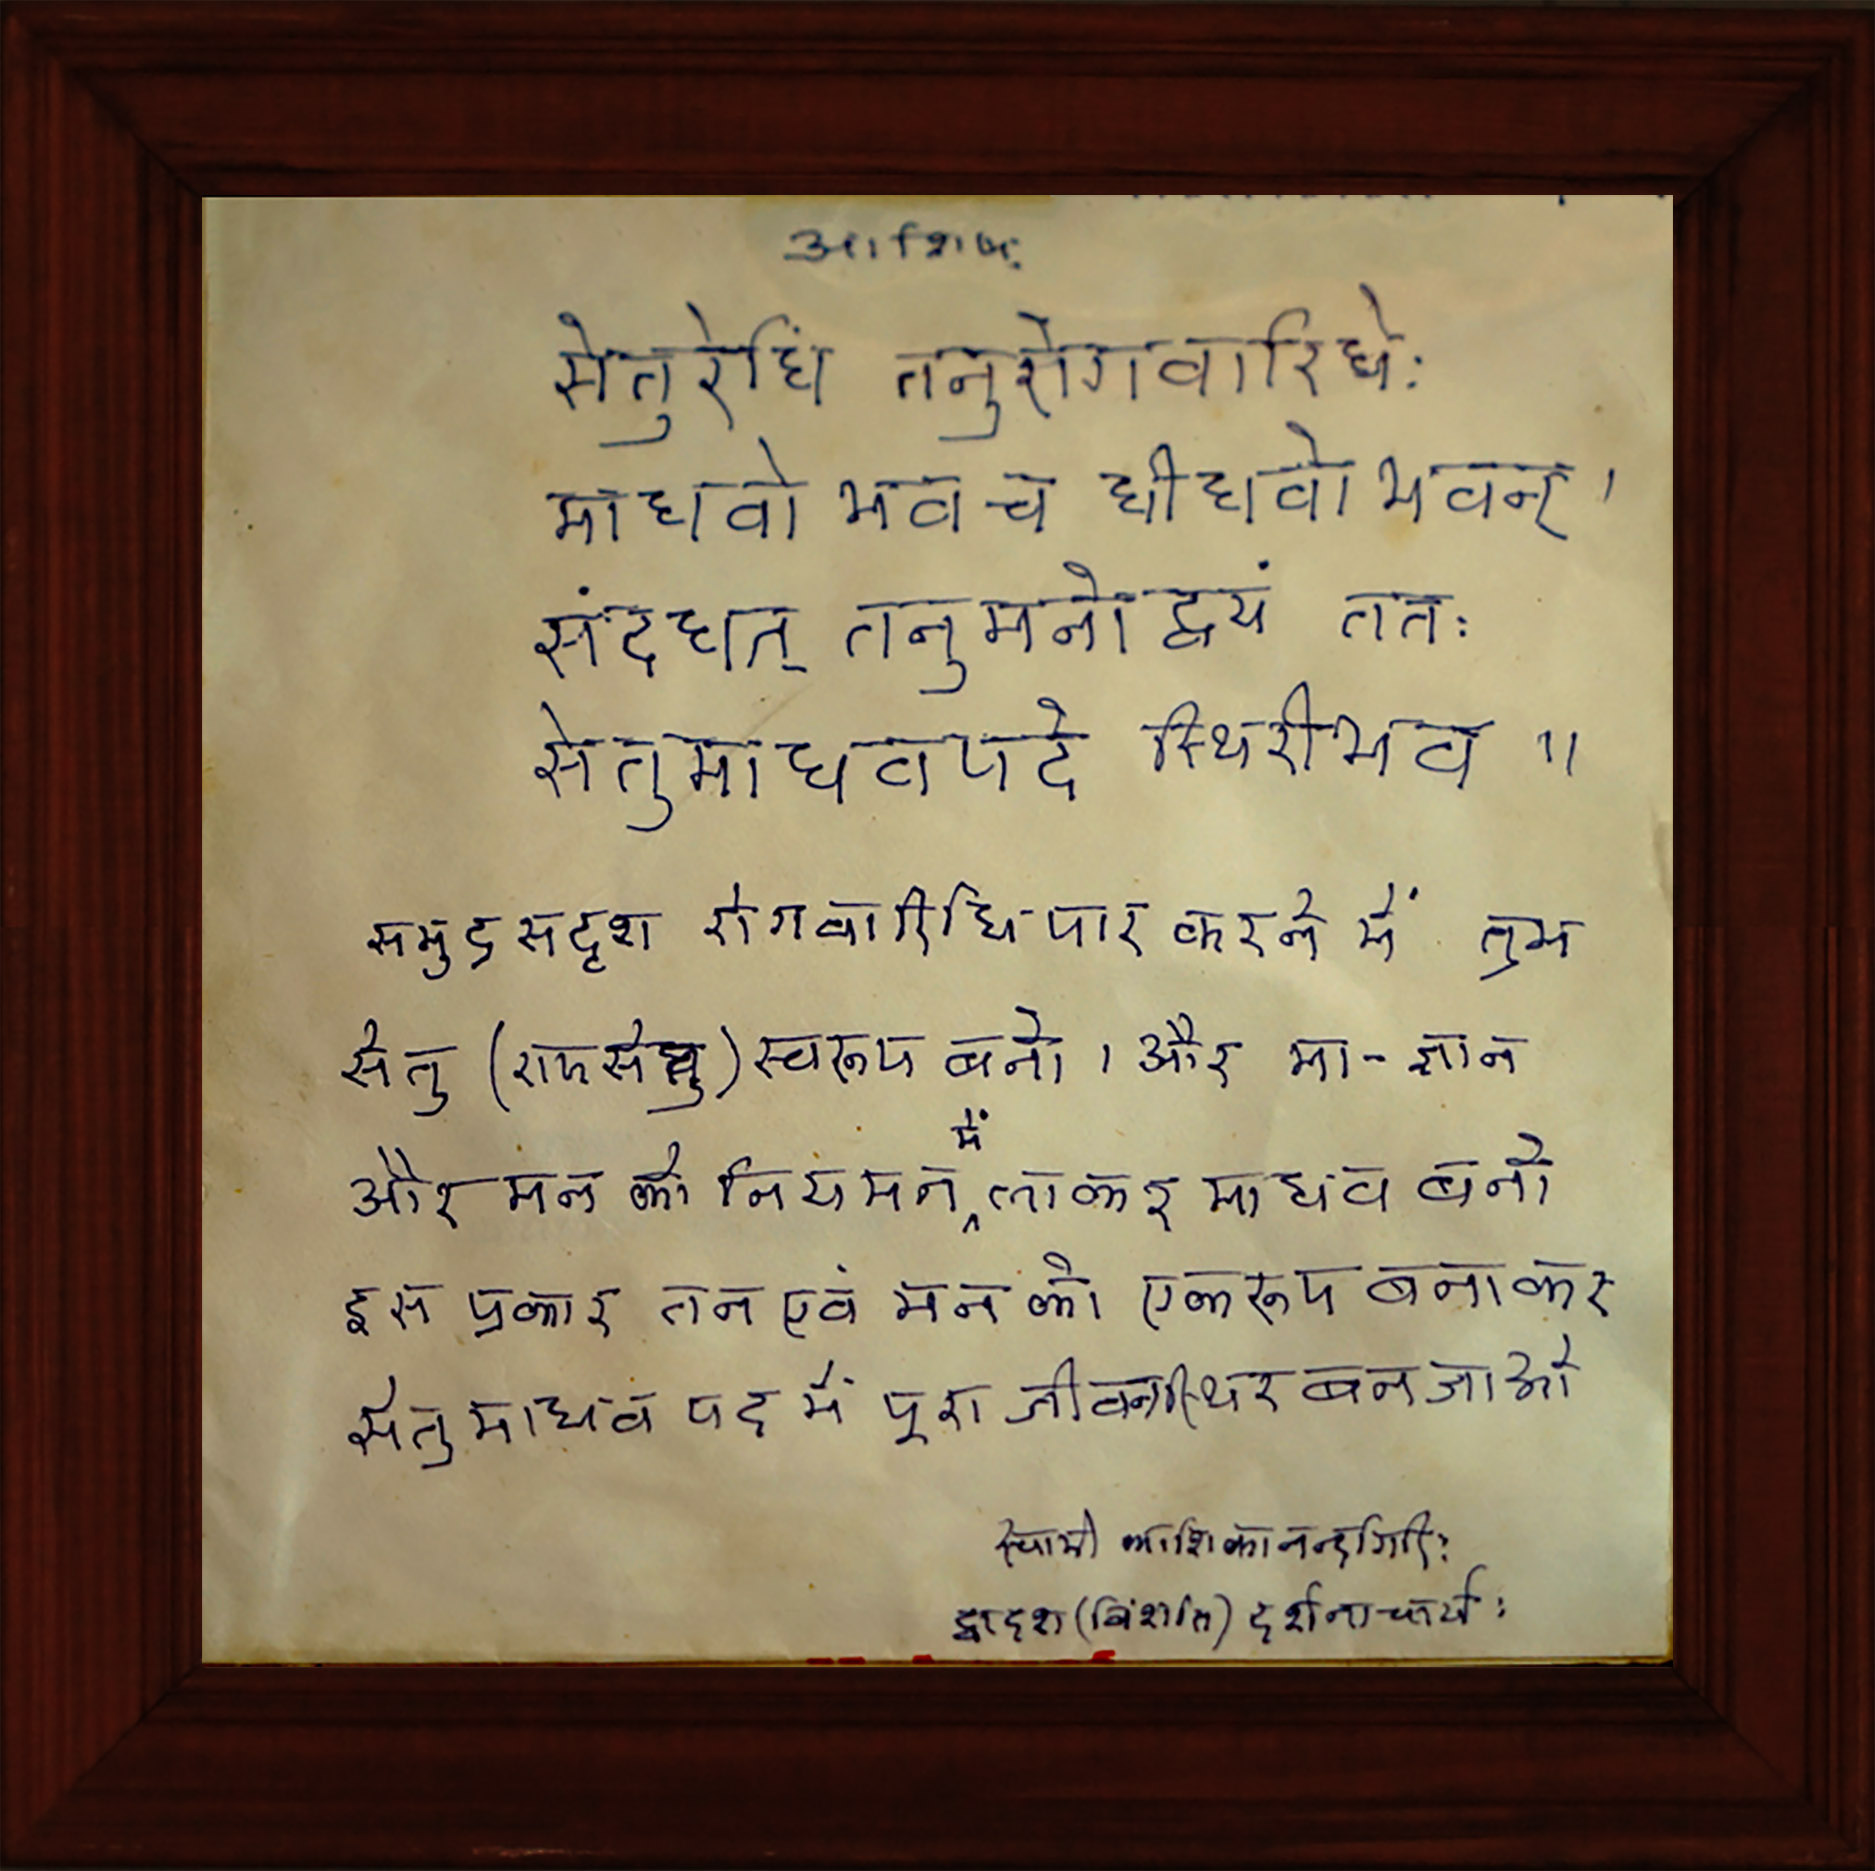 आशिषः
सेतुरेधि तनुरोगवारिधेः
माधवो भव च धीधवो भवन् ।
संदधत् तनुमनोद्वयं ततः
सेतुमाधवपदे स्थिरीभव ॥
समुद्रसदृश रोगवारिधि पार करने में तुम
सेतु (रामसेतु) स्वरूप बनो । और मा-ज्ञान
और मन को नियमन में लाकर माधव बनो
इस प्रकार तन एवं मन को एकरूप बनाकर
सेतुमाधव पद में पूरा जीवन स्थिर बन जाओ
स्वामी काशिकानन्दगिरिः
द्वादश (विंशति) दर्शनाचार्यः